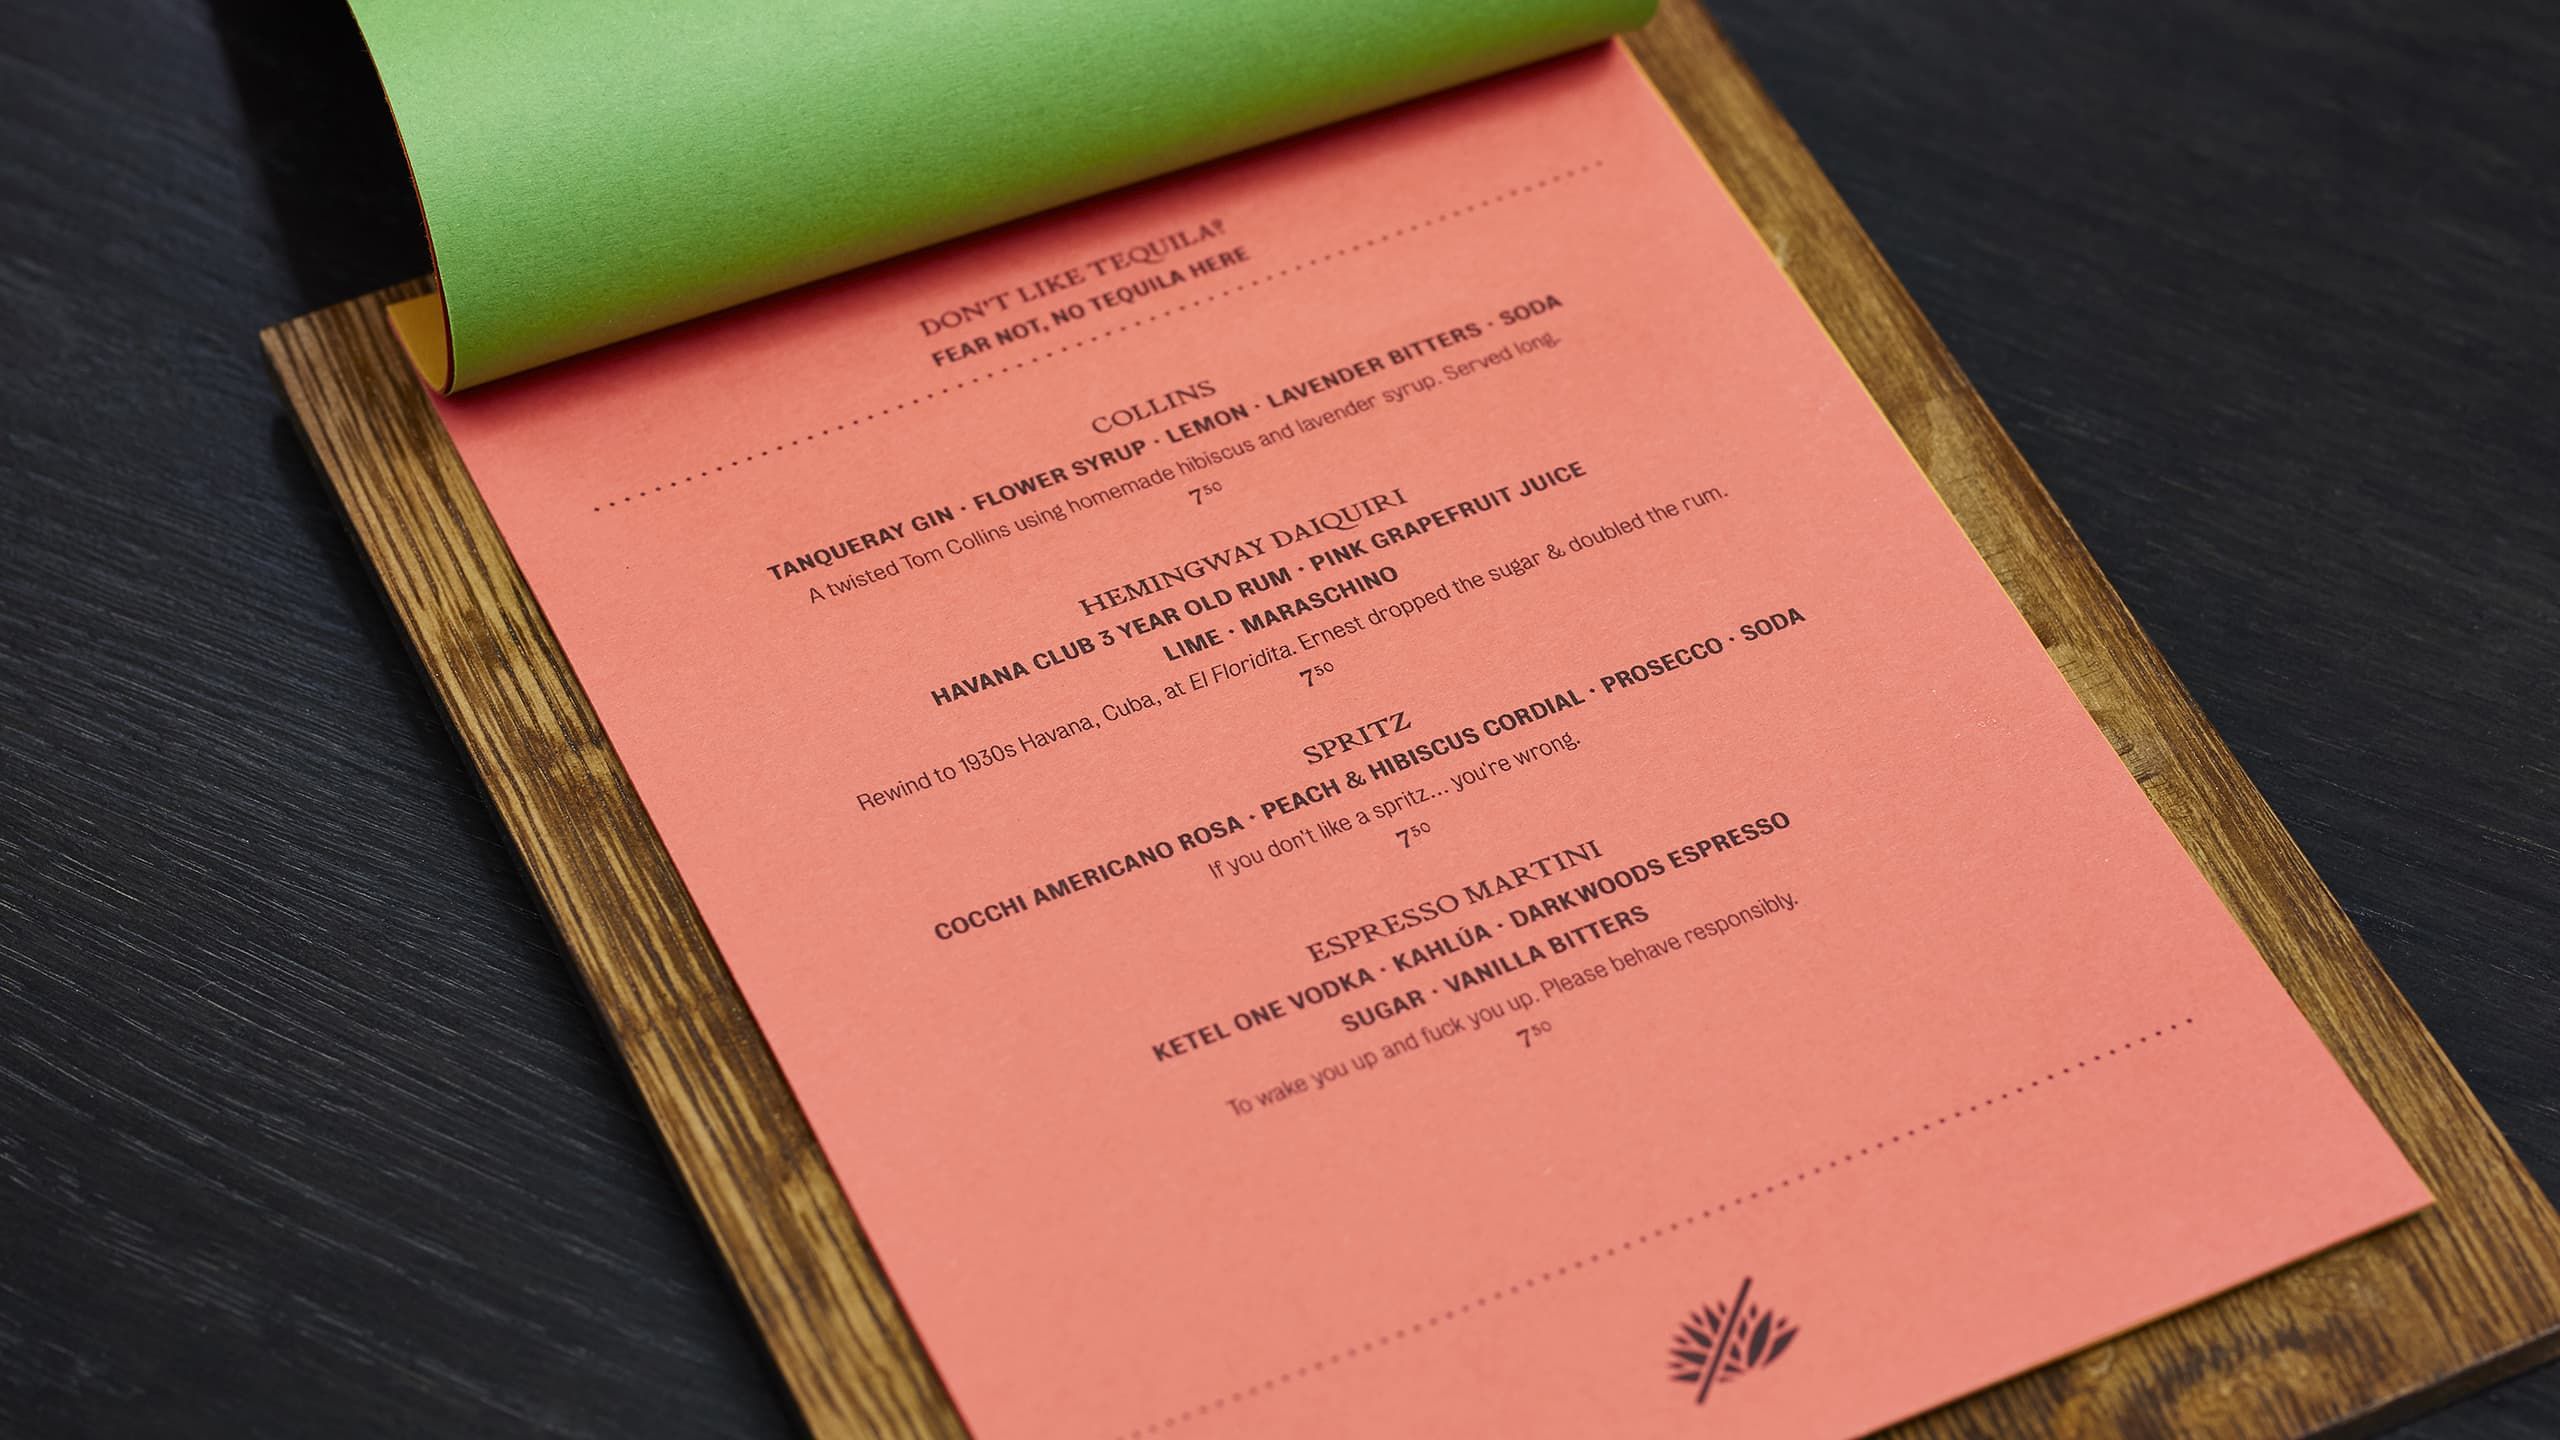 DON'T LIKE TEQUILA?
FEAR NOT, NO TEQUILA HERE
COLLINS
TANQUERAY GIN · FLOWER SYRUP · LEMON · LAVENDER BITTERS · SODA
A twisted Tom Collins using homemade hibiscus and lavender syrup. Served long.
7⁵⁰
HEMINGWAY DAIQUIRI
HAVANA CLUB 3 YEAR OLD RUM · PINK GRAPEFRUIT JUICE
LIME · MARASCHINO
Rewind to 1930s Havana, Cuba, at El Floridita. Ernest dropped the sugar & doubled the rum.
7⁵⁰
SPRITZ
COCCHI AMERICANO ROSA · PEACH & HIBISCUS CORDIAL · PROSECCO · SODA
If you don't like a spritz... you're wrong.
7⁵⁰
ESPRESSO MARTINI
KETEL ONE VODKA · KAHLÚA · DARKWOODS ESPRESSO
SUGAR · VANILLA BITTERS
To wake you up and fuck you up. Please behave responsibly.
7⁵⁰